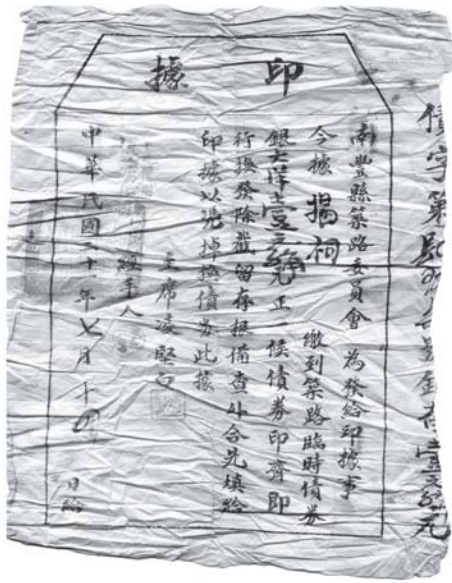 印據
債字第
南豐縣築路委員會 為發給印據事
今據 揭祠 繳到築路臨時債券
銀大洋壹元正一俟債券印齊即
行換發除截留存根備查外合先填給
印據以凴掉換債券此據
主席凌堅白
經手人
中華民國二十年七月十日給